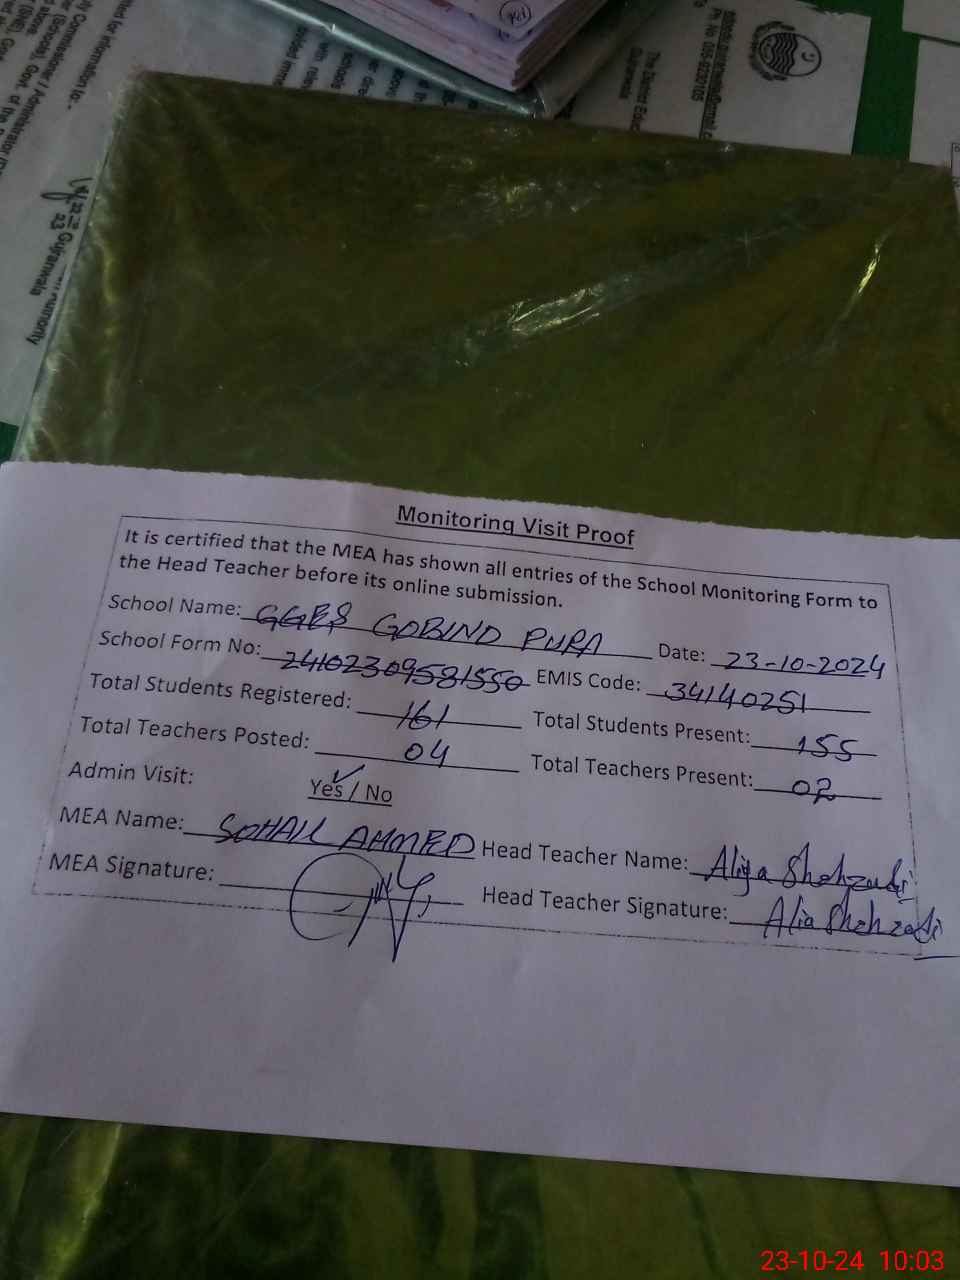 ted for information to:-
y Commissioner / Administrator
(schools), Govt. of the
Gujranwala
The District Educ
Gujranwala
Monitoring Visit Proof
It is certified that the MEA has shown all entries of the School Monitoring Form to
the Head Teacher before its online submission.
School Name: GGES GOBIND PURA Date: 23-10-2024
School Form No: 24102309581550 EMIS Code: 34140251
Total Students Registered: 161 Total Students Present: 155
Total Teachers Posted: 04 Total Teachers Present: 02
Admin Visit: Yes / No
MEA Name: SOHAIL AHMED Head Teacher Name: Aliya Shehzadi
MEA Signature: Head Teacher Signature: Alia Shehzadi
23-10-24 10:03